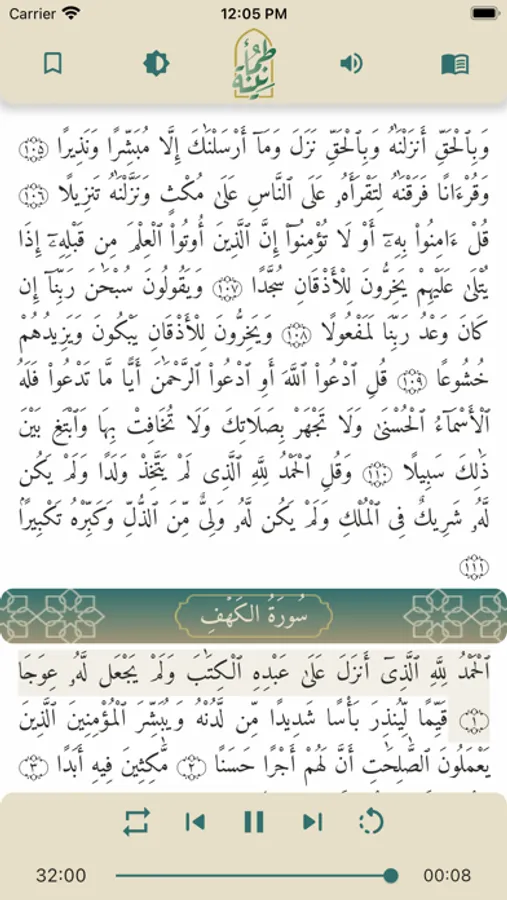 Carrier 12:05 PM
طمأنينة
وَبِٱلْحَقِّ أَنزَلْنَٰهُ وَبِٱلْحَقِّ نَزَلَ وَمَآ أَرْسَلْنَٰكَ إِلَّا مُبَشِّرًا وَنَذِيرًا ١٠٥
وَقُرْءَانًا فَرَقْنَٰهُ لِتَقْرَأَهُۥ عَلَى ٱلنَّاسِ عَلَىٰ مُكْثٍ وَنَزَّلْنَٰهُ تَنزِيلًا ١٠٦
قُلْ ءَامِنُوا۟ بِهِۦٓ أَوْ لَا تُؤْمِنُوٓا۟ إِنَّ ٱلَّذِينَ أُوتُوا۟ ٱلْعِلْمَ مِن قَبْلِهِۦٓ إِذَا
يُتْلَىٰ عَلَيْهِمْ يَخِرُّونَ لِلْأَذْقَانِ سُجَّدًا ١٠٧ وَيَقُولُونَ سُبْحَٰنَ رَبِّنَآ إِن
كَانَ وَعْدُ رَبِّنَا لَمَفْعُولًا ١٠٨ وَيَخِرُّونَ لِلْأَذْقَانِ يَبْكُونَ وَيَزِيدُهُمْ
خُشُوعًا ١٠٩ قُلِ ٱدْعُوا۟ ٱللَّهَ أَوِ ٱدْعُوا۟ ٱلرَّحْمَٰنَ أَيًّا مَّا تَدْعُوا۟ فَلَهُ
ٱلْأَسْمَآءُ ٱلْحُسْنَىٰ وَلَا تَجْهَرْ بِصَلَاتِكَ وَلَا تُخَافِتْ بِهَا وَٱبْتَغِ بَيْنَ
ذَٰلِكَ سَبِيلًا ١١٠ وَقُلِ ٱلْحَمْدُ لِلَّهِ ٱلَّذِى لَمْ يَتَّخِذْ وَلَدًا وَلَمْ يَكُن
لَّهُۥ شَرِيكٌ فِى ٱلْمُلْكِ وَلَمْ يَكُن لَّهُۥ وَلِىٌّ مِّنَ ٱلذُّلِّ وَكَبِّرْهُ تَكْبِيرًۢا
١١١
سُورَةُ الكَهْفِ
ٱلْحَمْدُ لِلَّهِ ٱلَّذِىٓ أَنزَلَ عَلَىٰ عَبْدِهِ ٱلْكِتَٰبَ وَلَمْ يَجْعَل لَّهُۥ عِوَجَا
١ قَيِّمًا لِّيُنذِرَ بَأْسًا شَدِيدًا مِّن لَّدُنْهُ وَيُبَشِّرَ ٱلْمُؤْمِنِينَ ٱلَّذِينَ
يَعْمَلُونَ ٱلصَّٰلِحَٰتِ أَنَّ لَهُمْ أَجْرًا حَسَنًا ٢ مَّٰكِثِينَ فِيهِ أَبَدًا ٣
32:00 00:08